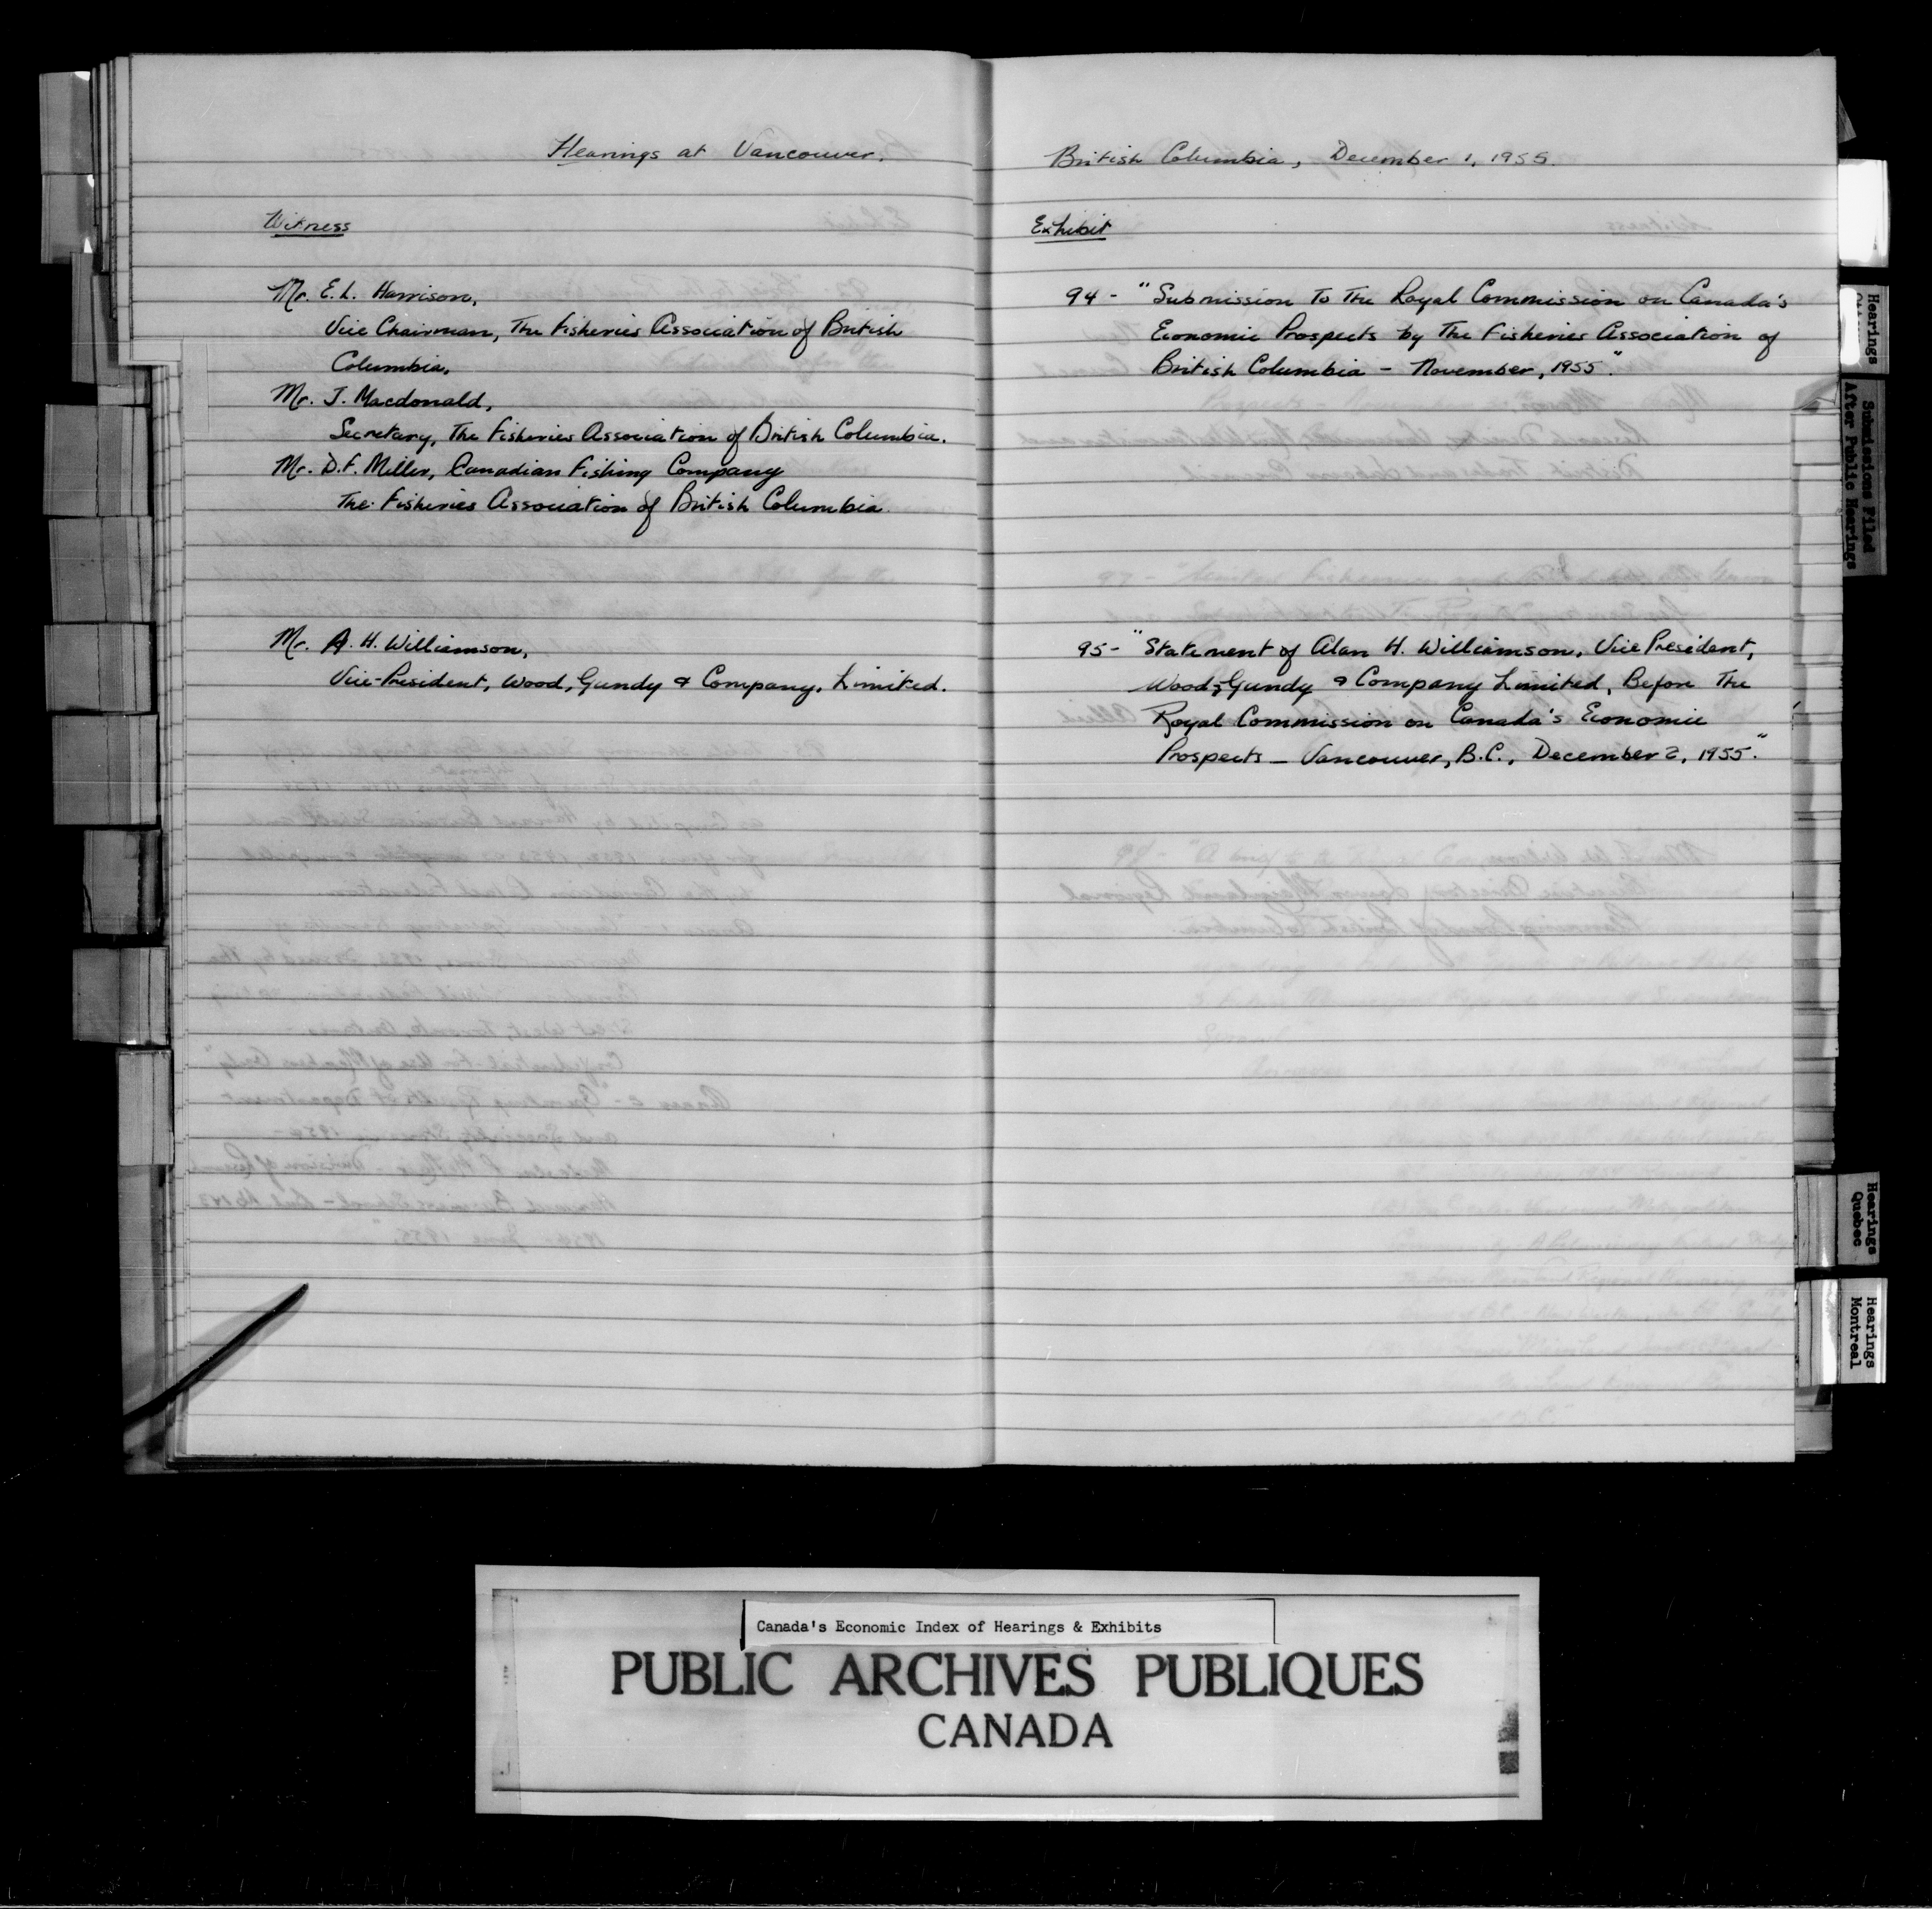 Hearings at Vancouver.
Witness
Mr. E. L. Harrison,
Vice Chairman, The Fisheries Association of British
Columbia.
Mr. J. Macdonald,
Secretary, The Fisheries Association of British Columbia.
Mr. D. F. Miller, Canadian Fishing Company
The Fisheries Association of British Columbia.
Mr. A. H. Williamson,
Vice-President, Wood, Gundy & Company, Limited.
British Columbia, December 1, 1955.
Exhibit
94 - "Submission To The Royal Commission on Canada's
Economic Prospects by The Fisheries Association of
British Columbia - November, 1955."
95 - "Statement of Alan H. Williamson, Vice President,
Wood, Gundy & Company Limited, Before The
Royal Commission on Canada's Economic
Prospects - Vancouver, B.C., December 2, 1955."
Hearings
Submissions Filed
After Public Hearings
Hearings
Quebec
Hearings
Montreal
Canada's Economic Index of Hearings & Exhibits
PUBLIC ARCHIVES PUBLIQUES
CANADA